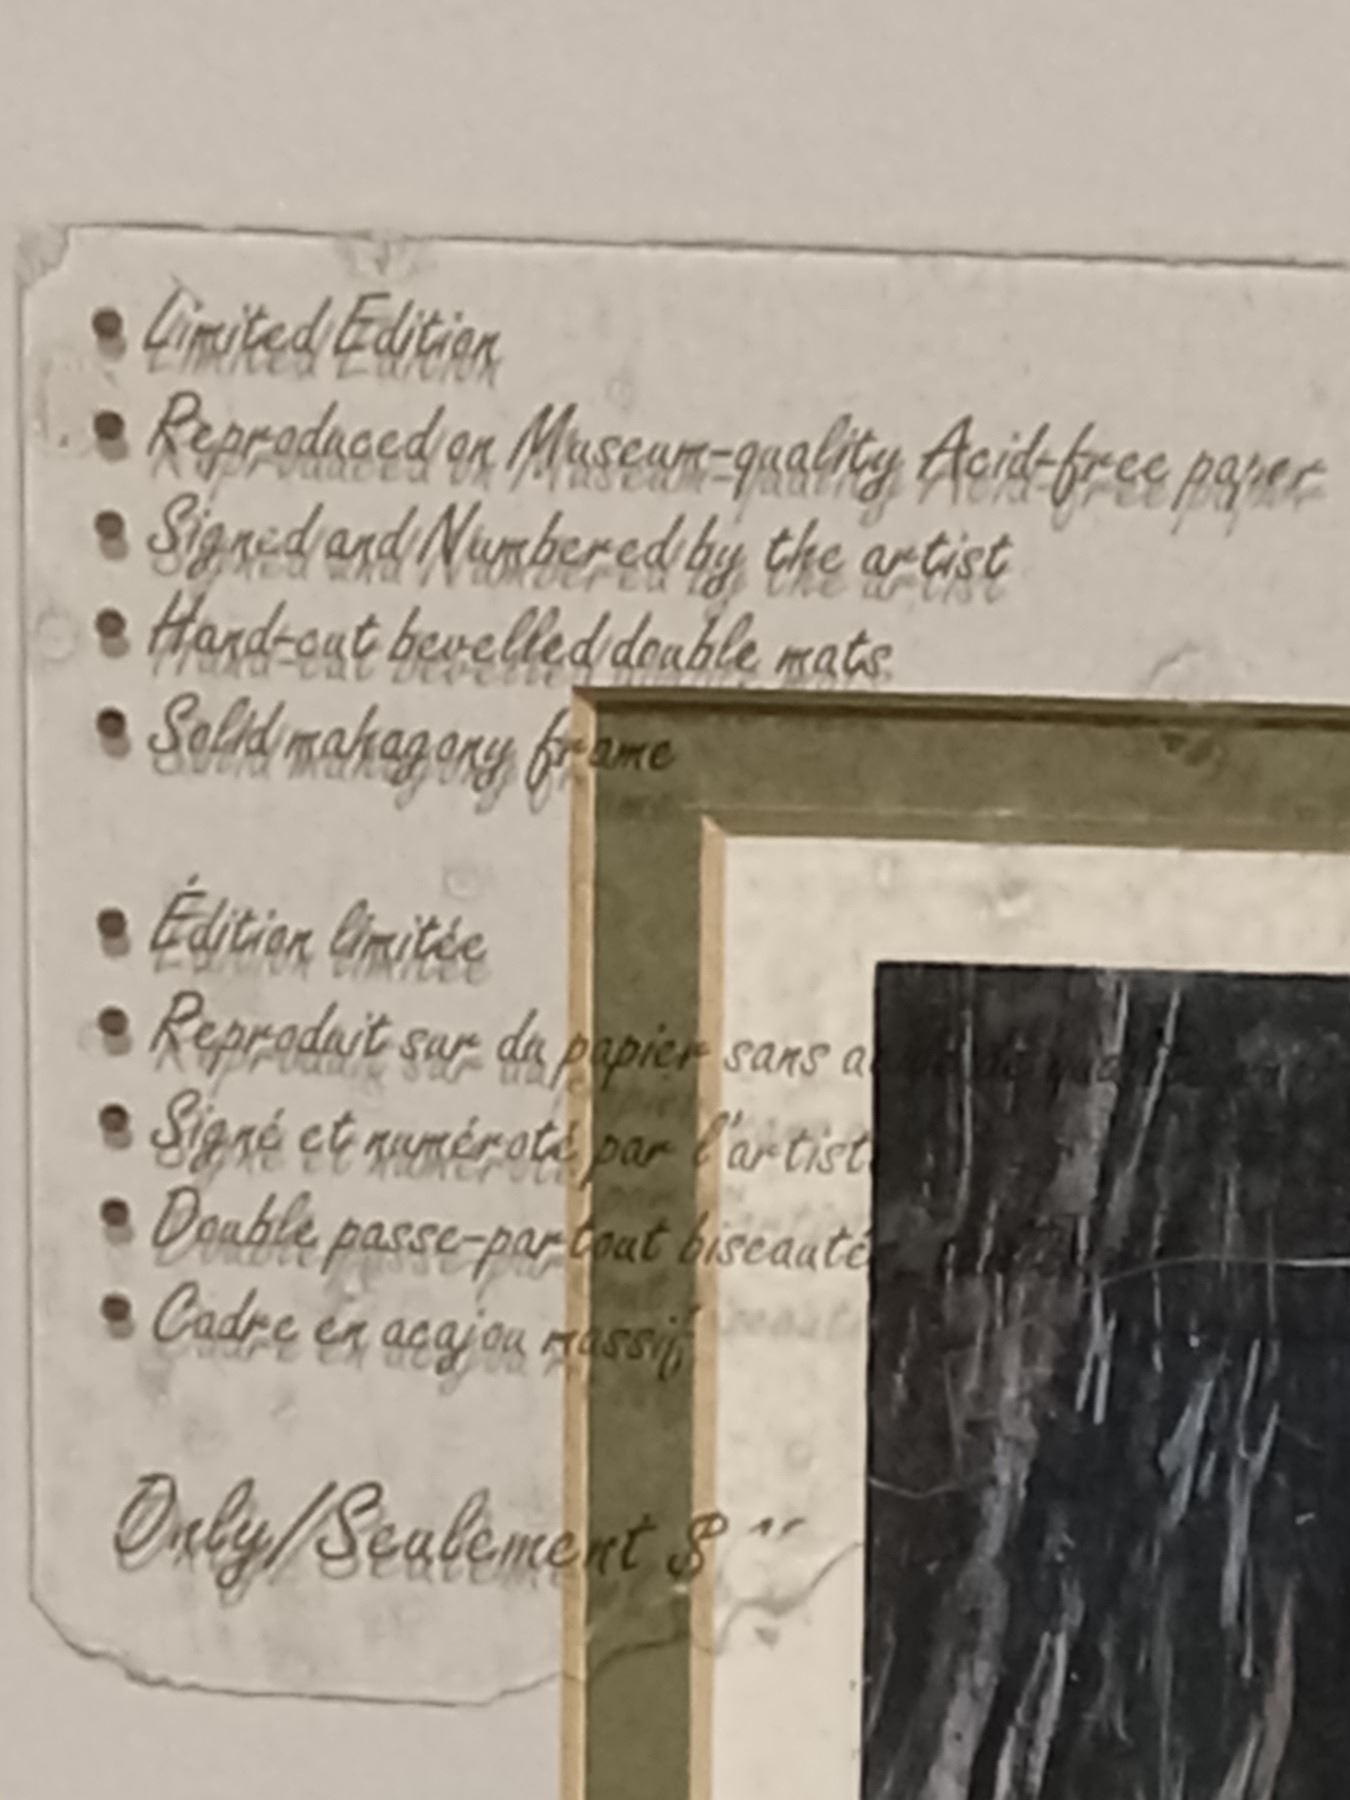 • Limited Edition
• Reproduced on Museum-quality Acid-free paper
• Signed and Numbered by the artist
• Hand-cut bevelled double mats
• Solid mahagony frame
• Édition limitée
• Reproduit sur du papier sans
• Signé et numéroté par l'artist
• Double passe-partout biseauté
• Cadre en acajou massif
Only/Seulement $